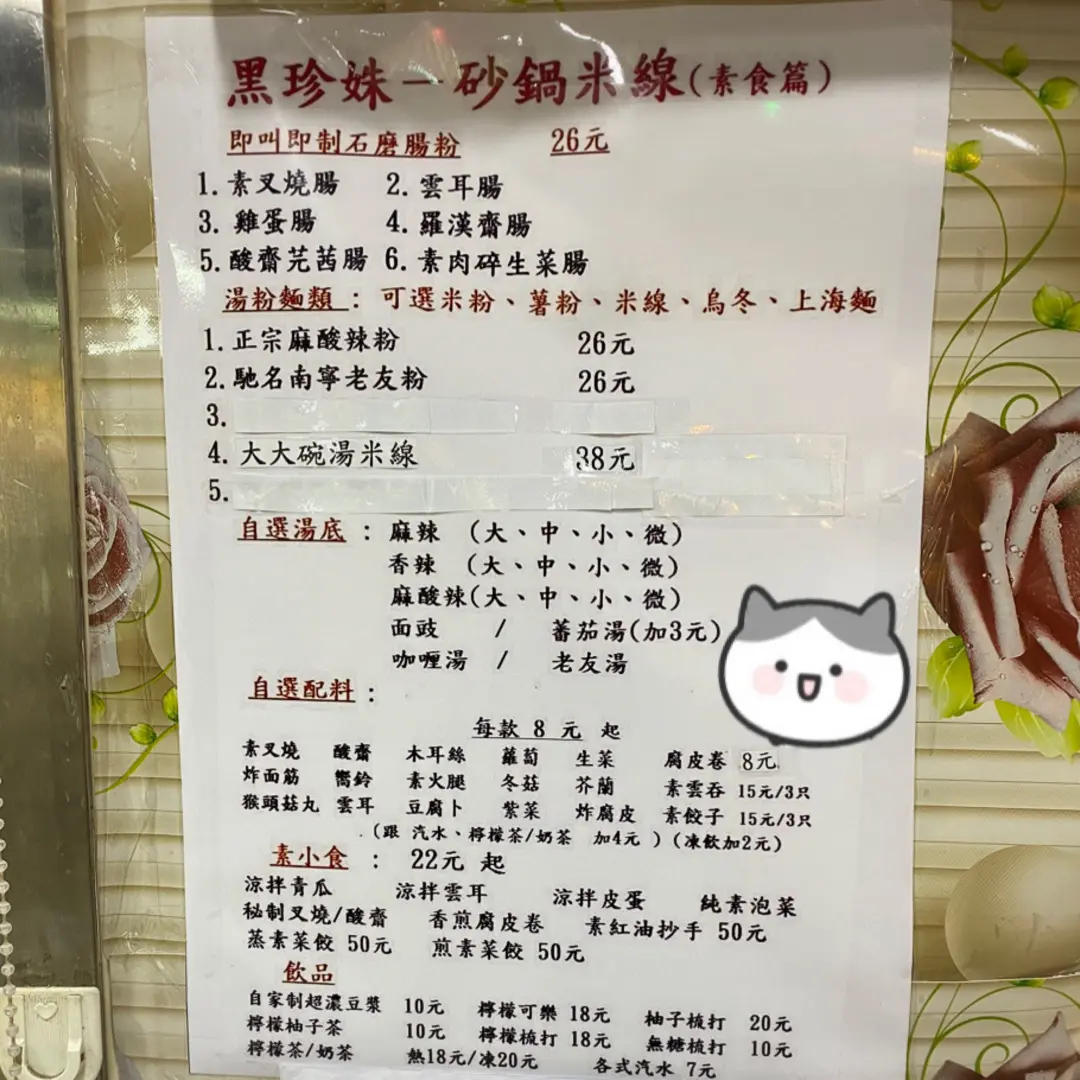 黑珍姝－砂鍋米線(素食篇)
即叫即制石磨腸粉 26元
1. 素叉燒腸 2. 雲耳腸
3. 雞蛋腸 4. 羅漢齋腸
5. 酸齋芫茜腸 6. 素肉碎生菜腸
湯粉麵類：可選米粉、薯粉、米線、烏冬、上海麵
1. 正宗麻酸辣粉 26元
2. 馳名南寧老友粉 26元
3.
4. 大大碗湯米線 38元
5.
自選湯底：麻辣 (大、中、小、微)
香辣 (大、中、小、微)
麻酸辣(大、中、小、微)
面豉 / 蕃茄湯(加3元)
咖喱湯 / 老友湯
自選配料：
每款 8 元 起
素叉燒 酸齋 木耳絲 蘿蔔 生菜 腐皮卷 8元
炸面筋 嚮鈴 素火腿 冬菇 芥蘭 素雲吞 15元/3只
猴頭菇丸 雲耳 豆腐卜 紫菜 炸腐皮 素餃子 15元/3只
(跟 汽水、檸檬茶/奶茶 加4元 ) (凍飲加2元)
素小食 ： 22元 起
涼拌青瓜 涼拌雲耳 涼拌皮蛋 純素泡菜
秘制叉燒/酸齋 香煎腐皮卷 素紅油抄手 50元
蒸素菜餃 50元 煎素菜餃 50元
飲品
自家制超濃豆漿 10元 檸檬可樂 18元 柚子梳打 20元
檸檬柚子茶 10元 檸檬梳打 18元 無糖梳打 10元
檸檬茶/奶茶 熱18元/凍20元 各式汽水 7元